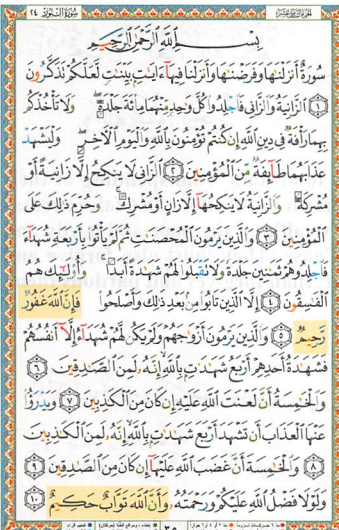 سُورَةُ النُّورِ ٢٤
بِسْمِ اللَّهِ الرَّحْمَٰنِ الرَّحِيمِ
سُورَةٌ أَنزَلْنَاهَا وَفَرَضْنَاهَا وَأَنزَلْنَا فِيهَا آيَاتٍ بَيِّنَاتٍ لَّعَلَّكُمْ تَذَكَّرُونَ
١ الزَّانِيَةُ وَالزَّانِي فَاجْلِدُوا كُلَّ وَاحِدٍ مِّنْهُمَا مِائَةَ جَلْدَةٍ ۖ وَلَا تَأْخُذْكُم
بِهِمَا رَأْفَةٌ فِي دِينِ اللَّهِ إِن كُنتُمْ تُؤْمِنُونَ بِاللَّهِ وَالْيَوْمِ الْآخِرِ ۖ وَلْيَشْهَدْ
عَذَابَهُمَا طَائِفَةٌ مِّنَ الْمُؤْمِنِينَ ٢ الزَّانِي لَا يَنكِحُ إِلَّا زَانِيَةً أَوْ
مُشْرِكَةً وَالزَّانِيَةُ لَا يَنكِحُهَا إِلَّا زَانٍ أَوْ مُشْرِكٌ ۚ وَحُرِّمَ ذَٰلِكَ عَلَى
الْمُؤْمِنِينَ ٣ وَالَّذِينَ يَرْمُونَ الْمُحْصَنَاتِ ثُمَّ لَمْ يَأْتُوا بِأَرْبَعَةِ شُهَدَاءَ
فَاجْلِدُوهُمْ ثَمَانِينَ جَلْدَةً وَلَا تَقْبَلُوا لَهُمْ شَهَادَةً أَبَدًا ۚ وَأُولَٰئِكَ هُمُ
الْفَاسِقُونَ ٤ إِلَّا الَّذِينَ تَابُوا مِن بَعْدِ ذَٰلِكَ وَأَصْلَحُوا فَإِنَّ اللَّهَ غَفُورٌ
رَّحِيمٌ ٥ وَالَّذِينَ يَرْمُونَ أَزْوَاجَهُمْ وَلَمْ يَكُن لَّهُمْ شُهَدَاءُ إِلَّا أَنفُسُهُمْ
فَشَهَادَةُ أَحَدِهِمْ أَرْبَعُ شَهَادَاتٍ بِاللَّهِ إِنَّهُ لَمِنَ الصَّادِقِينَ ٦
وَالْخَامِسَةُ أَنَّ لَعْنَتَ اللَّهِ عَلَيْهِ إِن كَانَ مِنَ الْكَاذِبِينَ ٧ وَيَدْرَؤُا
عَنْهَا الْعَذَابَ أَن تَشْهَدَ أَرْبَعَ شَهَادَاتٍ بِاللَّهِ إِنَّهُ لَمِنَ الْكَاذِبِينَ
٨ وَالْخَامِسَةَ أَنَّ غَضَبَ اللَّهِ عَلَيْهَا إِن كَانَ مِنَ الصَّادِقِينَ ٩
وَلَوْلَا فَضْلُ اللَّهِ عَلَيْكُمْ وَرَحْمَتُهُ وَأَنَّ اللَّهَ تَوَّابٌ حَكِيمٌ ١٠